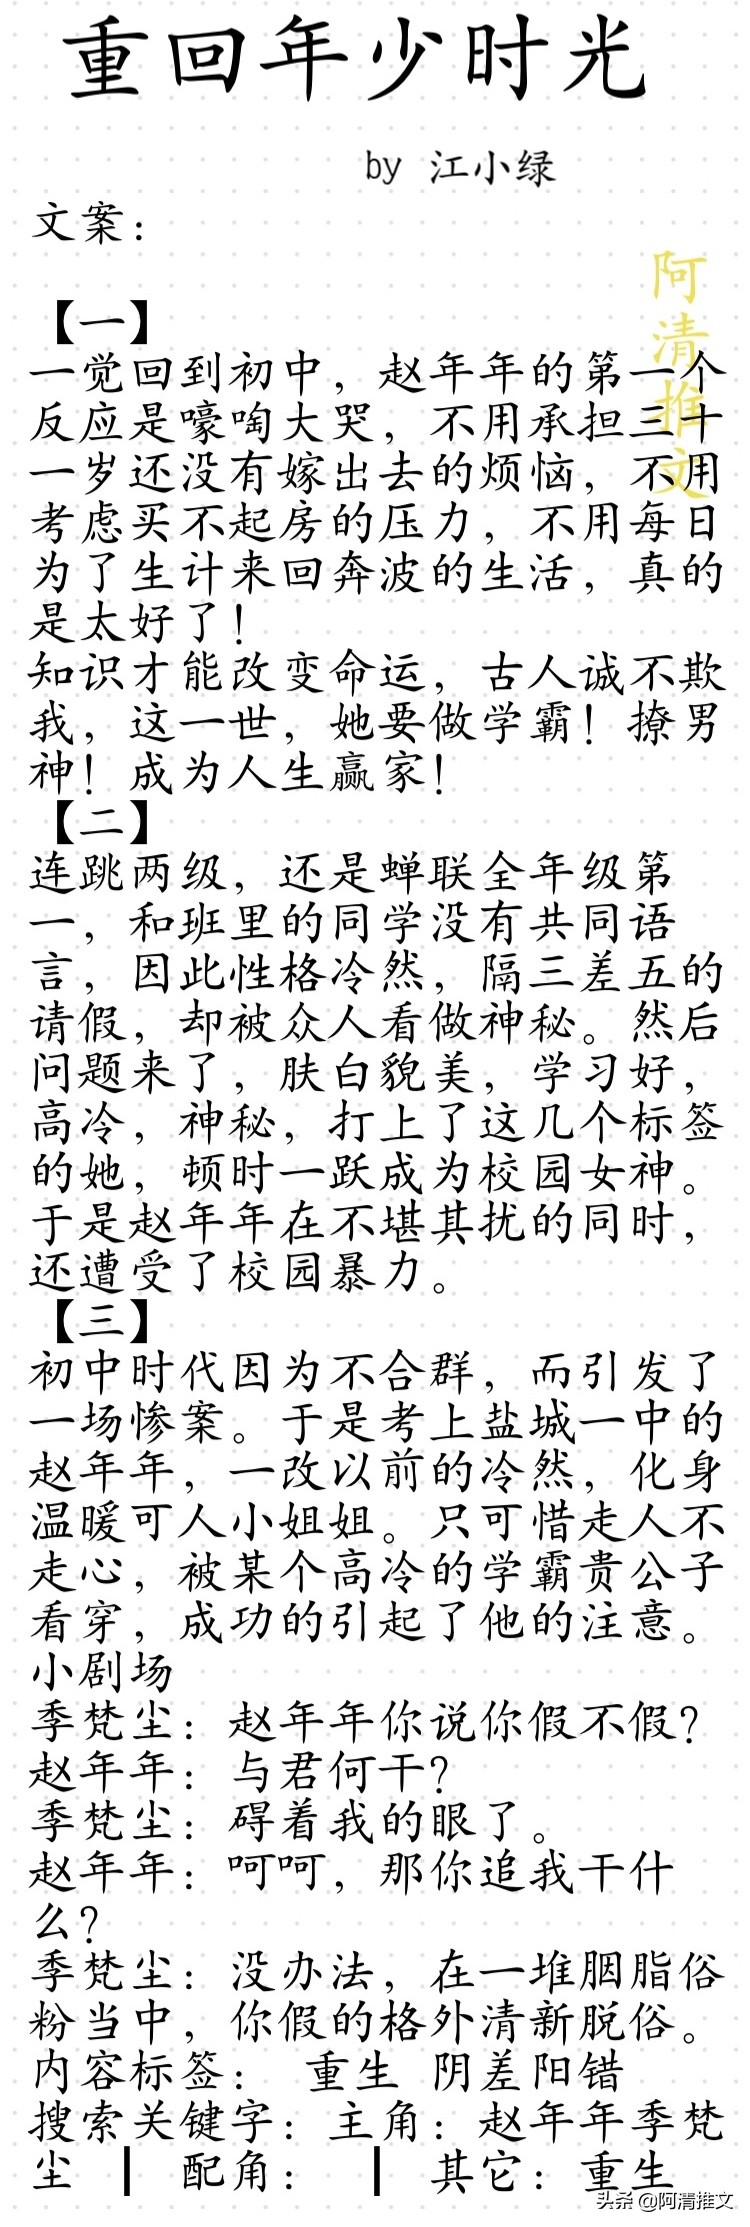 重回年少时光
by 江小绿
文案：
阿清推文
【一】
一觉回到初中，赵年年的第一个
反应是嚎啕大哭，不用承担三十
一岁还没有嫁出去的烦恼，不用
考虑买不起房的压力，不用每日
为了生计来回奔波的生活，真的
是太好了！
知识才能改变命运，古人诚不欺
我，这一世，她要做学霸！撩男
神！成为人生赢家！
【二】
连跳两级，还是蝉联全年级第
一，和班里的同学没有共同语
言，因此性格冷然，隔三差五的
请假，却被众人看做神秘。然后
问题来了，肤白貌美，学习好，
高冷，神秘，打上了这几个标签
的她，顿时一跃成为校园女神。
于是赵年年在不堪其扰的同时，
还遭受了校园暴力。
【三】
初中时代因为不合群，而引发了
一场惨案。于是考上盐城一中的
赵年年，一改以前的冷然，化身
温暖可人小姐姐。只可惜走人不
走心，被某个高冷的学霸贵公子
看穿，成功的引起了他的注意。
小剧场
季梵尘：赵年年你说你假不假？
赵年年：与君何干？
季梵尘：碍着我的眼了。
赵年年：呵呵，那你追我干什
么？
季梵尘：没办法，在一堆胭脂俗
粉当中，你假的格外清新脱俗。
内容标签： 重生 阴差阳错
搜索关键字：主角：赵年年季梵
尘 ┃ 配角： ┃ 其它：重生
头条 @阿清推文